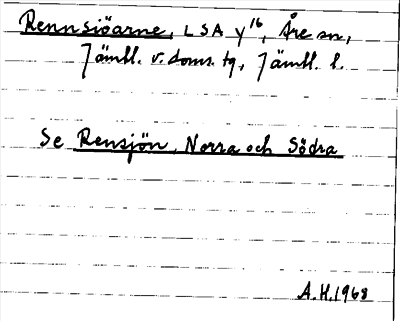 Rennsiöarne, LSA y¹⁶, Åre sn,
Jämtl. v. doms. tg, Jämtl. l.
Se Rensjön, Norra och Södra
A.H. 1968